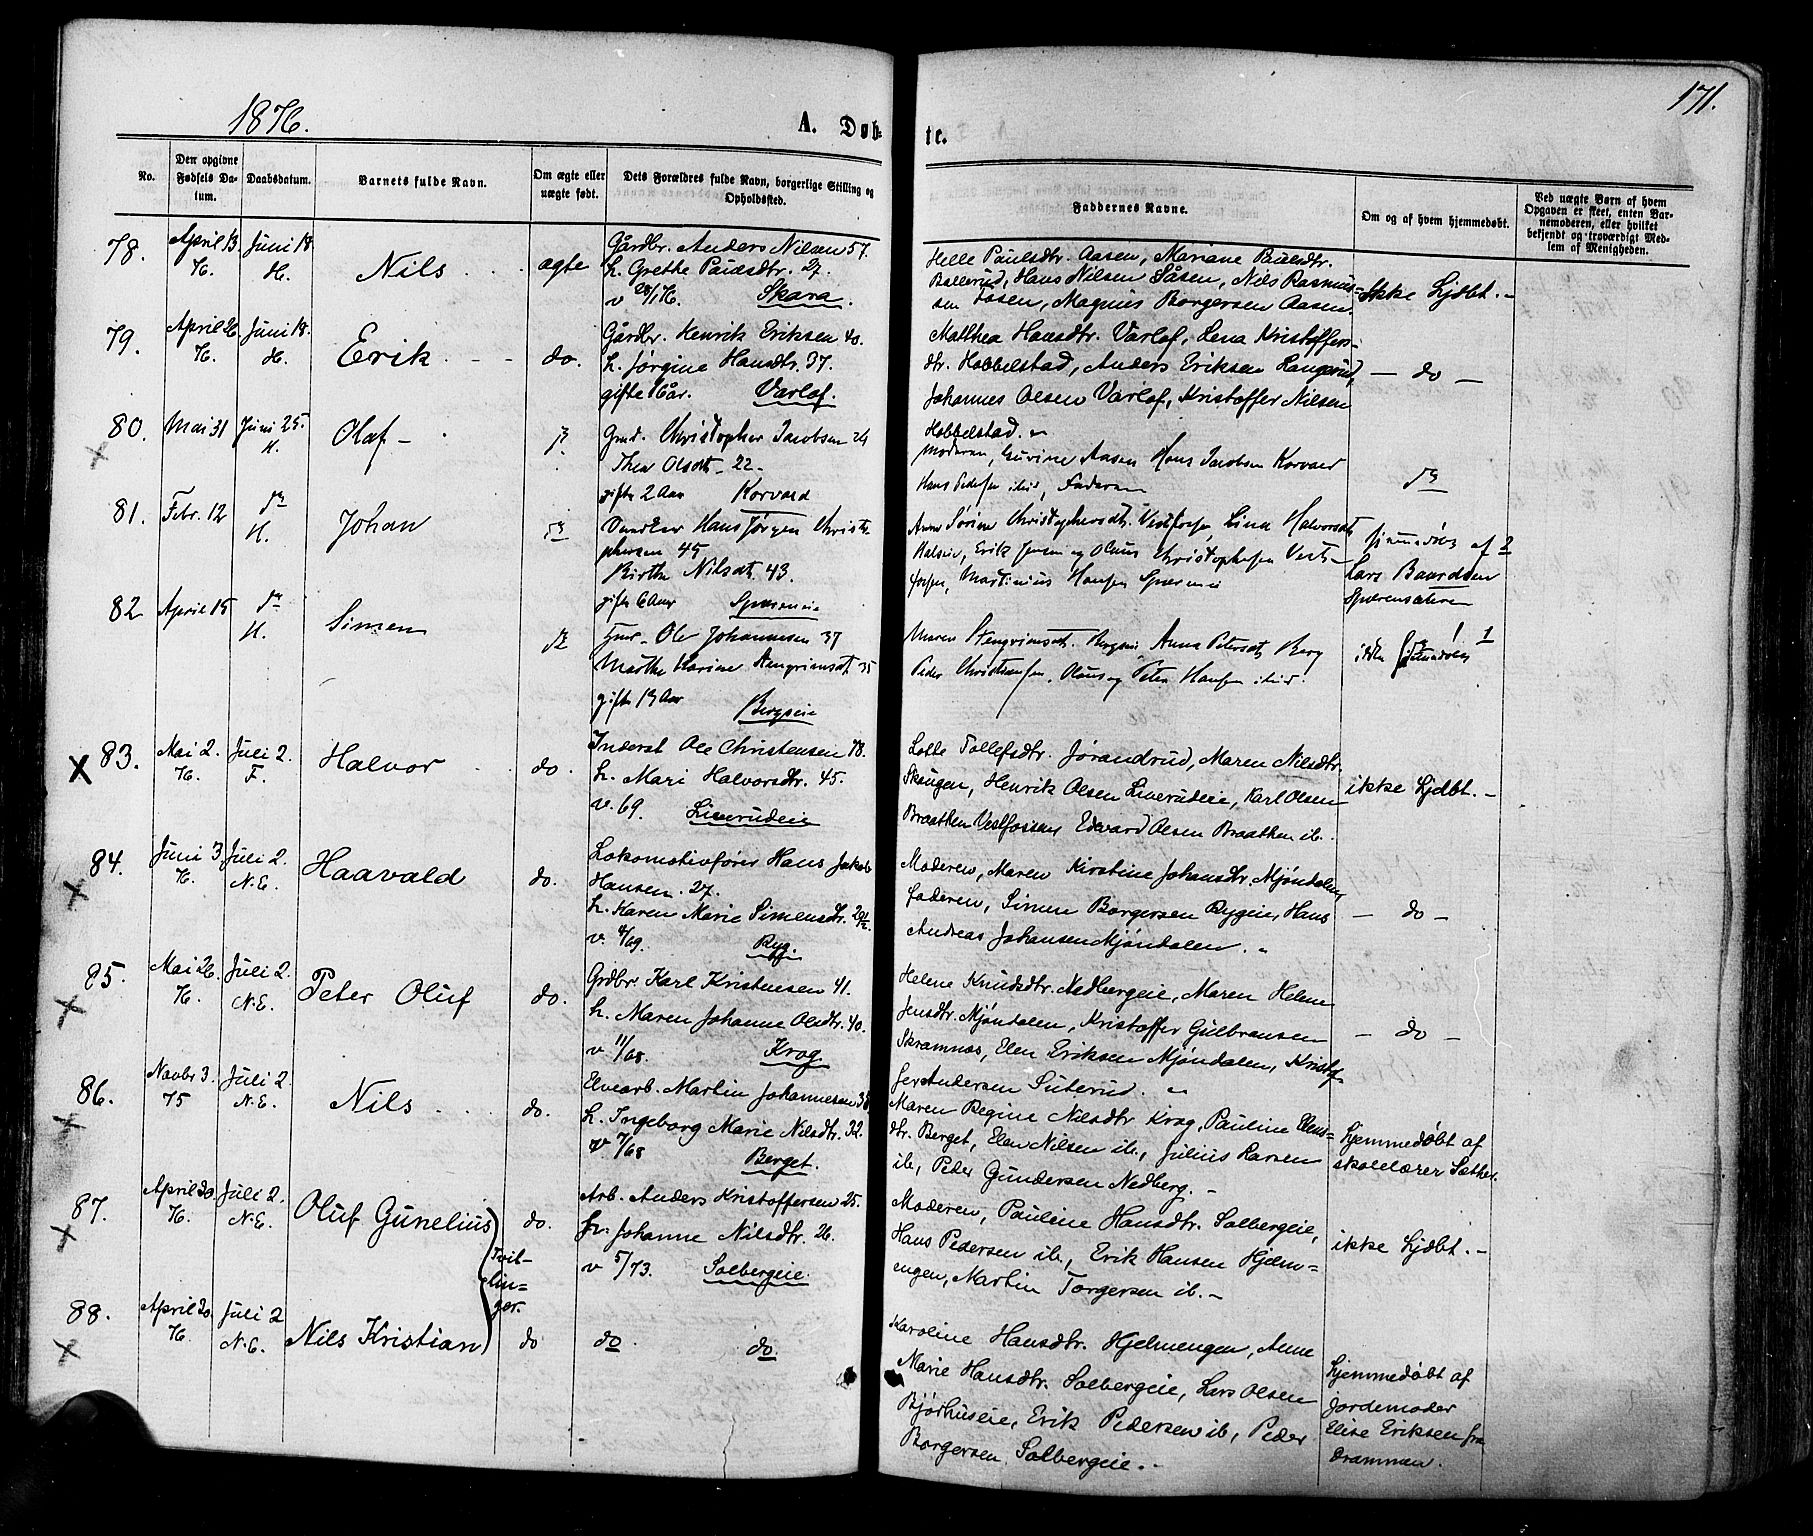 1876.
A. Døb-
te.
171.
No.
Den opgivne Fødsels Da-
tum.
Daabsdatum.
Barnets fulde Navn.
Om ægte eller
uægte født.
Dets Forældres fulde Navn, borgerlige Stilling og
Opholdssted.
Faddernes Navne.
Om og af hvem hjemmedøbt.
Ved uægte Børn af hvem
Opgaven er skeet, enten Bar-
nemoderen, eller hvilket
bekjendt og troværdigt Med-
lem af Menigheden.
78.
April 13
76.
Juni 18.
H.
Nils
ægte
Gårdbr. Anders Nilsen 57.
h. Grethe Paulsdtr. 27.
v 28/1 76. Skara.
Helle Paulsdtr. Aasen, Mariane Paulsdtr.
Bollerud, Hans Nilsen Låsen, Nils Rasmus-
sen Fosen, Magnus Borgersen Aasen.
ikke hjdbt. -
79.
April 26
76.
Juni 18.
H.
Erik
do.
Gårdbr. Henrik Eriksen 40.
h. Jørgine Hansdtr. 37.
gifte 16 år. Varlof.
Matthea Hansdtr. Varlof, Lena Kristoffers-
dtr. Hobbelstad, Anders Eriksen Langerud,
Johannes Olsen Varlof, Kristoffer Nilsen
Hobbelstad.
- do -
80.
Mai 31
Juni 25.
H.
Olaf -
Christopher Jacobsen 24
Thea Olsdt 22 -
gifte 2 Aar Korvard
Moderen, Aasen Hans Jacobsen Korvard
Hans Pedersen ibid, Faderen
81.
Febr. 12
H.
Johan
Hans Jørgen Christo
phersen 45
Birthe Nilsdt. 43.
gifte 6 Aar
Anne Sørine Christophersdt. Vestfossen, Lina Halvorsdt
Erik Jensen og Olaus Christophersen Vest-
fossen, Martinius Hansen
af
Lars Baardsen
82
April 15
H.
Simen
Ole Johannesen 37
Marthe Karine Stengrimsdt 35
gifte 13 Aar
Bergseie
Maren Stengrimsdt. Bergseie Anna Petersdt Berg
Peder Christiansen, Olaus og Peter Hansen ibid.
ikke
83.
Mai 2.
76.
Juli 2.
F.
Halvor
do.
Inderst Ole Christensen 48.
h. Mari Halvorsdtr. 45.
v. 69. Liverudeie
Lotte Tollefsdtr. Jørandrud, Maren Nilsdtr.
Skaugen, Henrik Olsen Liverudeie, Karl Olsen
Braathen Vestfossen, Edvard Olsen Braathen ib.
ikke hjdbt. -
84.
Juni 3
76.
Juli 2.
N.E.
Haavald
do.
Lokomotivfører Hans Jakob
Hansen. 27.
h. Karen Marie Simensdtr. 29½.
v. 4/69. Ryg.
Moderen, Maren Kirstine Johansdtr. Mjøndalen,
Faderen, Simen Borgersen Rygeie, Hans
Andreas Johansen Mjøndalen.
- do -
85.
Mai 26.
76.
Juli 2.
N.E.
Peter Oluf
do.
Grdbr. Karl Kristensen 41.
h. Maren Johanne Olsdtr. 40.
v 11/68. Krog.
Helene Knudsdtr. Nedbergeie, Maren Helene
Jensdtr. Mjøndalen, Kristoffer Gulbransen
Skramnæs, Elen Eriksen Mjøndalen, Kristof-
fer Andersen Suterud.
- do -
86.
Novbr 3.
75
Juli 2.
N.E.
Nils
do.
Elvearb. Martin Johannesen 38
h. Ingeborg Marie Nilsdtr. 32.
v. 7/68 Berget.
Maren Regine Nilsdtr Krog, Pauline Elens-
dtr. Berget, Elen Nilsen ib., Julius Larsen
ib., Peder Gundersen Nedberg. -
hjemmedøbt af
skolelærer Sæther.
87.
April 20.
76.
Juli 2.
N.E.
Oluf Gunelius
Tvil-
lin-
ger.
do.
Arb. Anders Kristoffersen 25.
h. Johanne Nilsdtr. 26.
v 5/73. Solbergeie.
Moderen, Pauline Hansdtr. Solbergeie,
Hans Pedersen ib., Erik Hansen Hjelm-
engen, Martin Torgersen ib. -
ikke hjdbt. -
88.
April 20
76.
Juli 2
N.E.
Nils Kristian
do
do.
do.
Karoline Hansdtr. Hjelmengen, Anne
Marie Hansdtr. Solbergeie, Lars Olsen
Bjørhuseie, Erik Pedersen ib., Peder
Borgersen Solbergeie. -
hjemmedøbt af
Jordemoder
Elise Eriksen fra
Drammen.